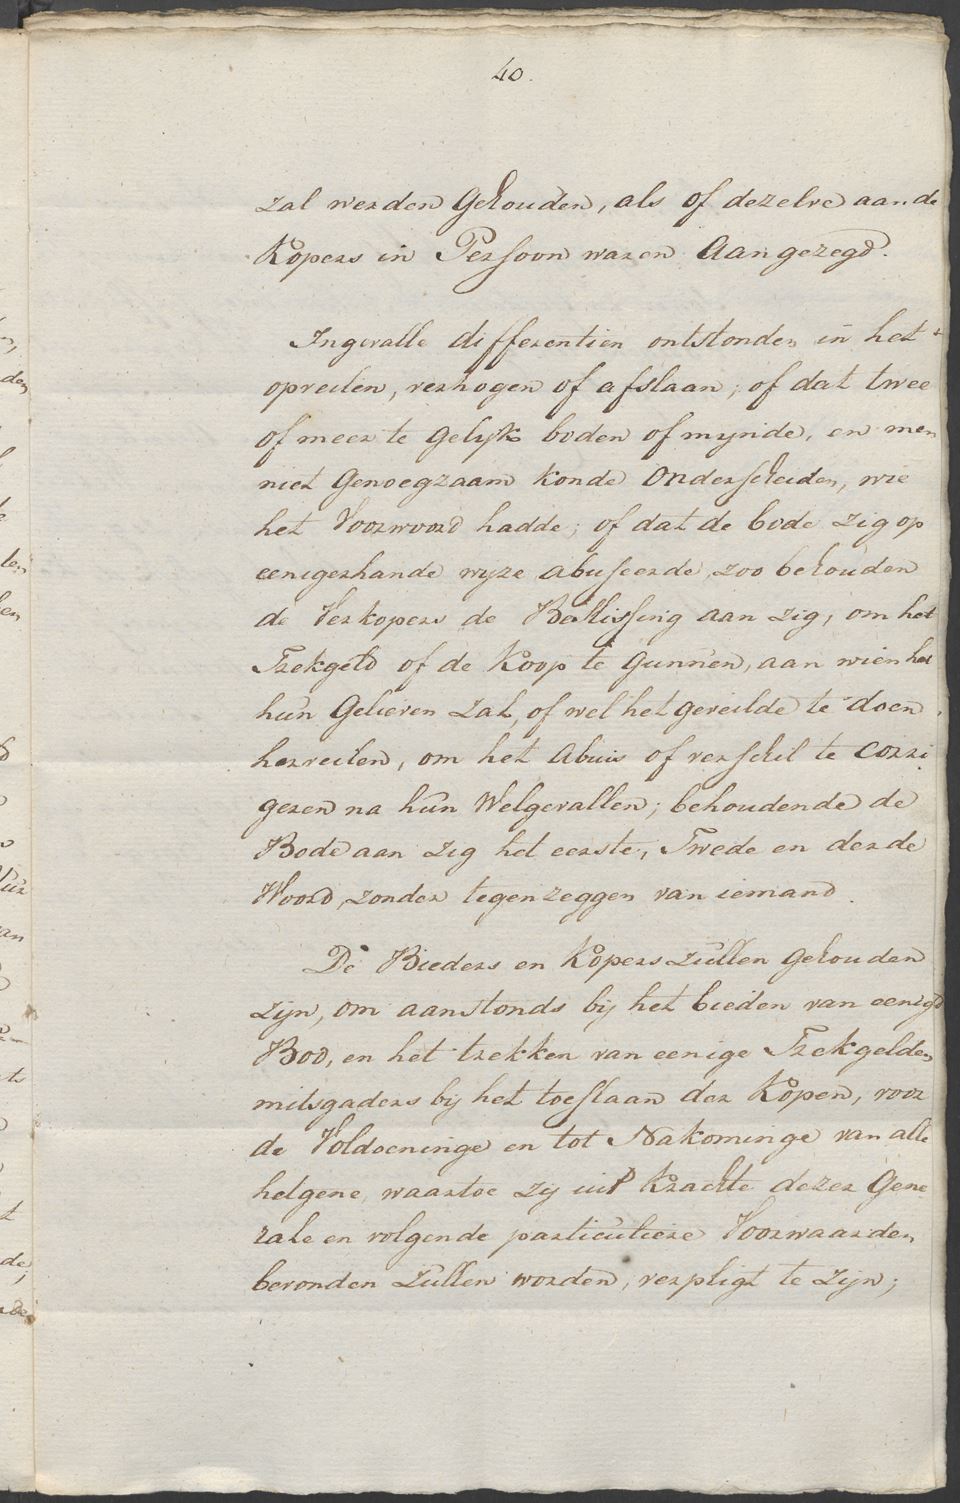 40.
zal werden Gehouden, als of dezelve aan de
Kopers in Persoon waren Aangezegd.
Ingevalle differentien ontstonden in het
opveilen, verhogen of afslaan; of dat twee
of meer te Gelijk boden of mynde, en men
niet Genoegzaam konde Onderscheiden, wie
het Voorwoord hadde; of dat de bode zig op
eenigerhande wyze abuseerde, zoo behouden
de Verkopers de Beslissing aan zig, om het
Trekgeld of de Koop te Gunnen, aan wien het
hun Gelieven zal, of wel het geveilde te doen
herveilen, om het Abuis of verschil te Corri
geren na hun Welgevallen; behoudende de
Bode aan zig het eerste, Twede en derde
Woord, zonder tegenzeggen van iemand.
De Bieders en Kopers zullen Gehouden
zijn, om aanstonds bij het bieden van eenig
Bod, en het trekken van eenige Trekgelden
mitsgaders bij het toeslaan der Kopen, voor
de Voldoeninge en tot Nakominge van alle
hetgene, waartoe zij uit Krachte dezer Gene
rale en volgende particuliere Voorwaarden
bevonden zullen worden, verpligt te zijn;